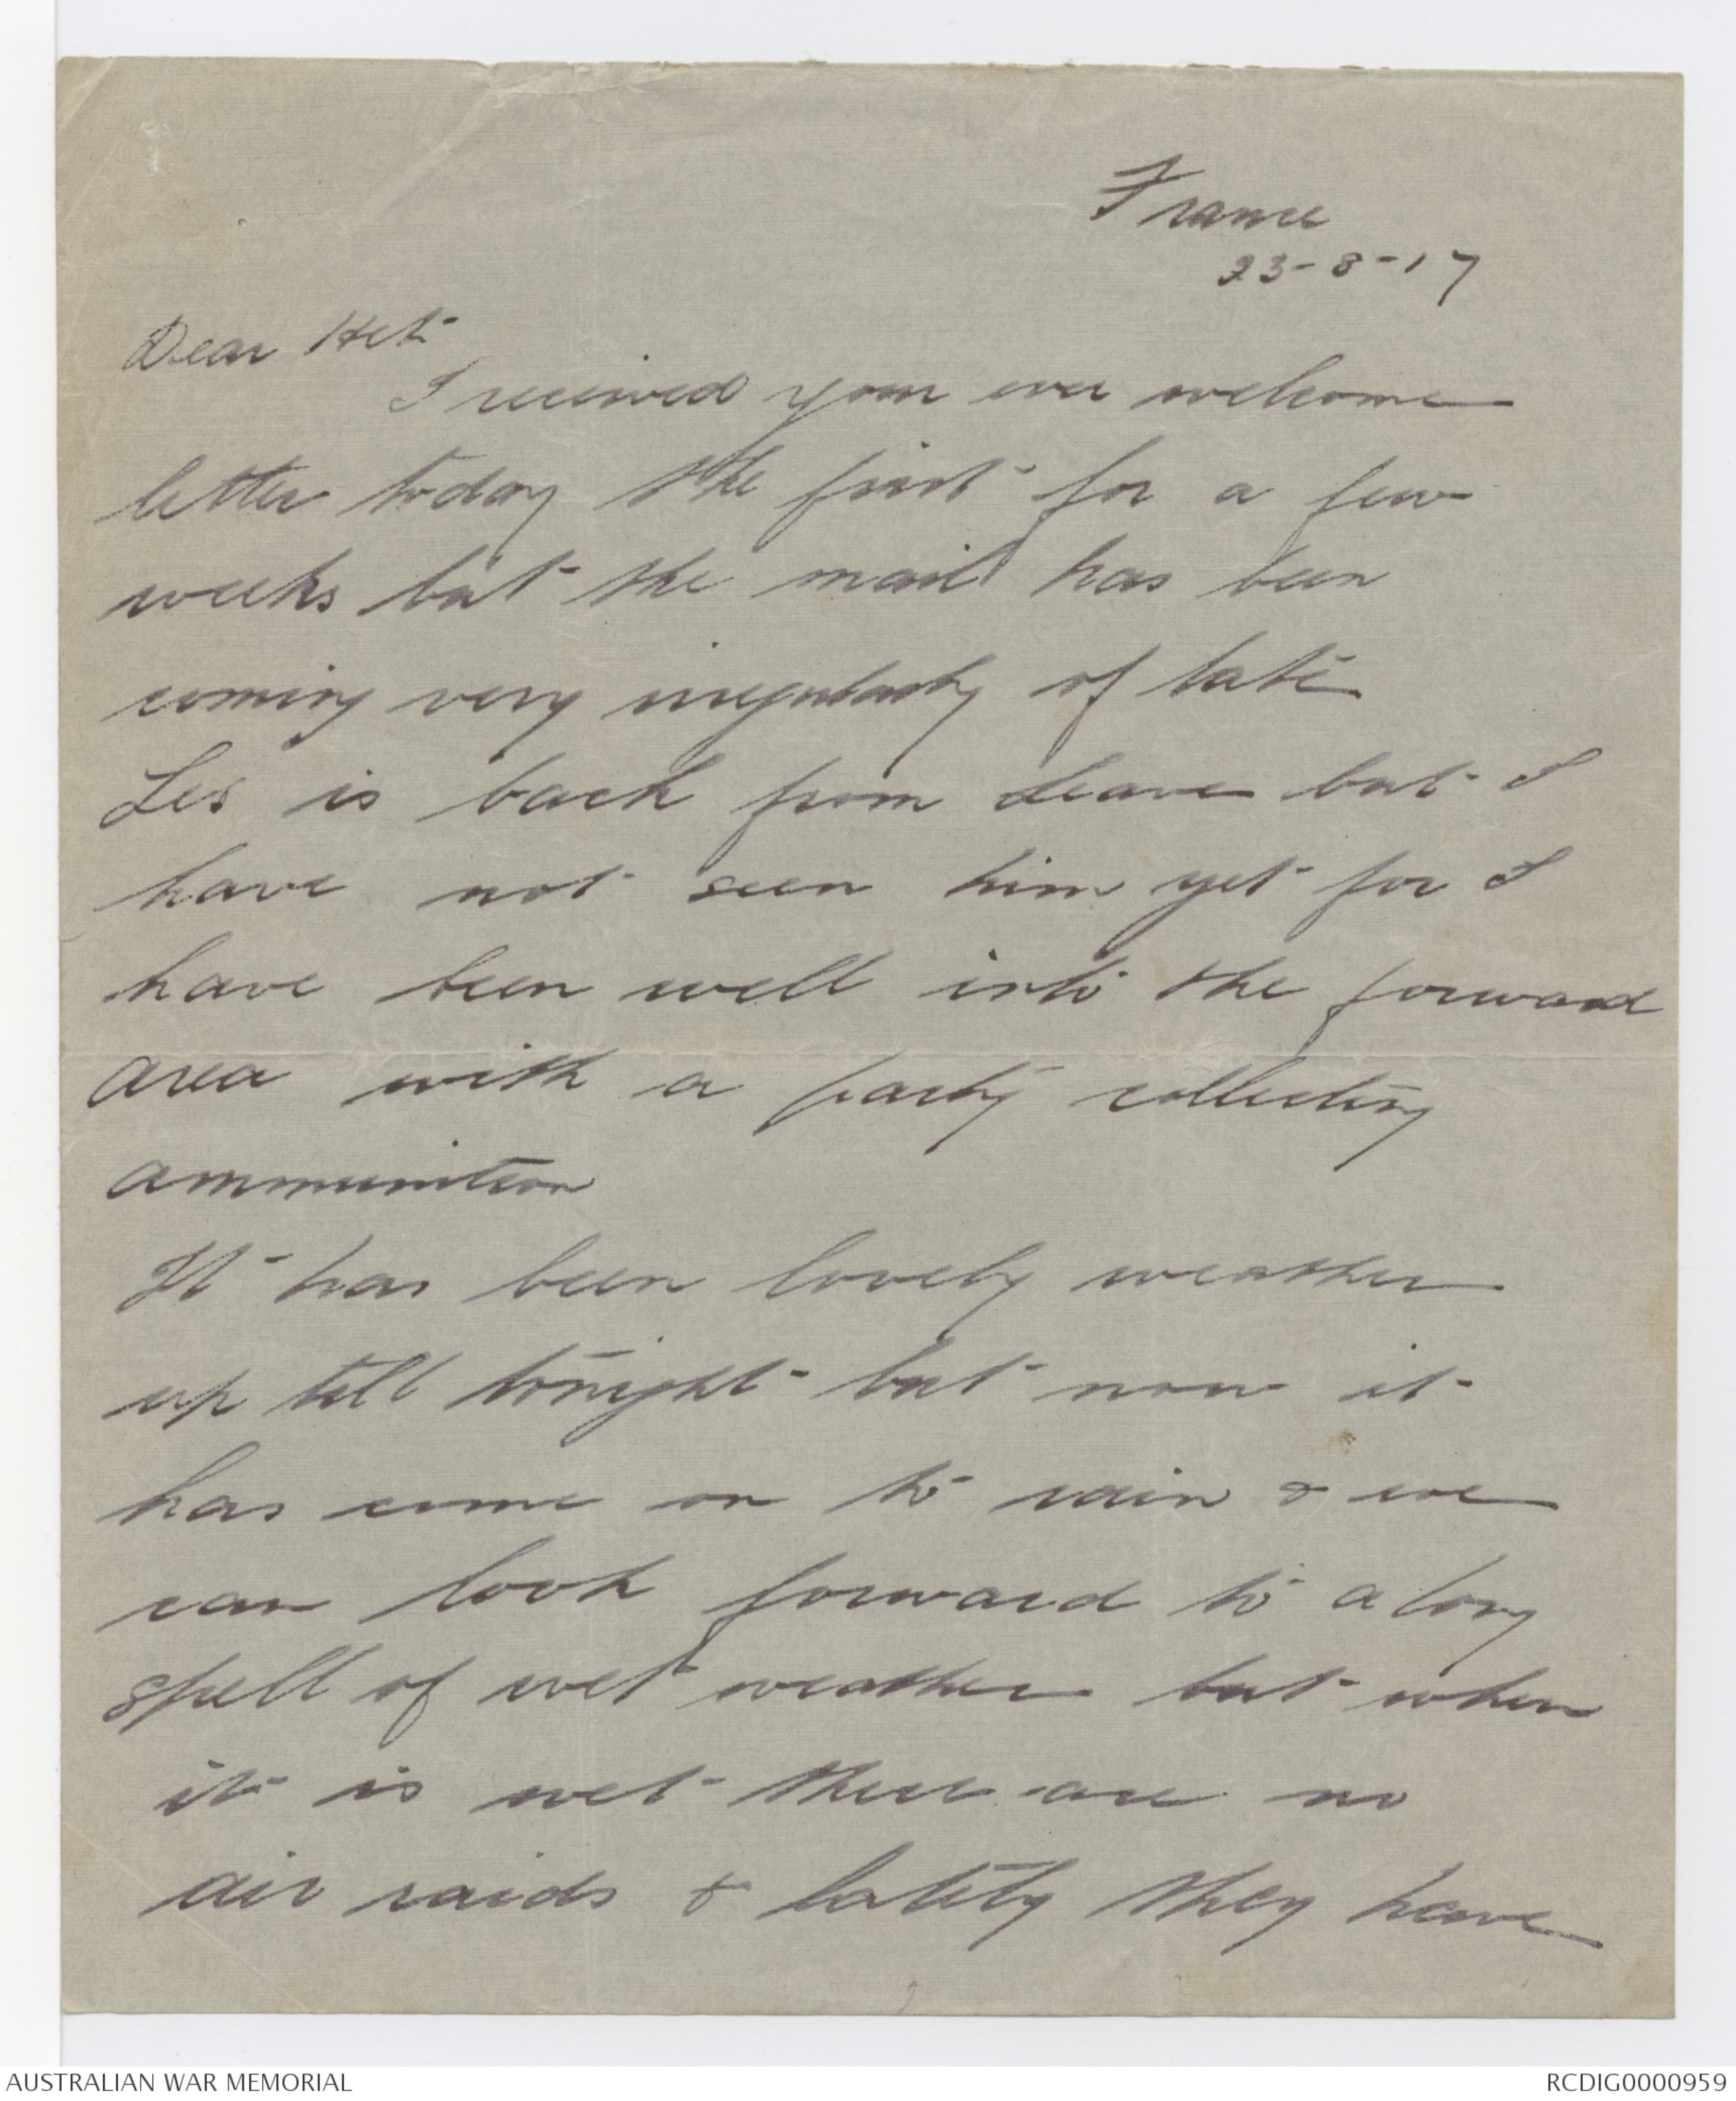 France
23-8-17
Dear Het
I received your ever welcome
letter today the first for a few
weeks but the mail has been
coming very irregularly of late
Les is back from leave but I
have not seen him yet for I
have been well into the forward
area with a party collecting
ammunition
It has been lovely weather
up till tonight but now it
has come on to rain & we
can look forward to a long
spell of wet weather but when
it is wet there are no
air raids & lately they have
AUSTRALIAN WAR MEMORIAL
RCDIG0000959